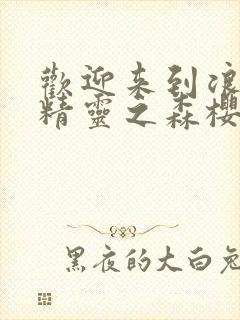 歡迎来到浪
精靈之森櫻
黑夜的大白兔